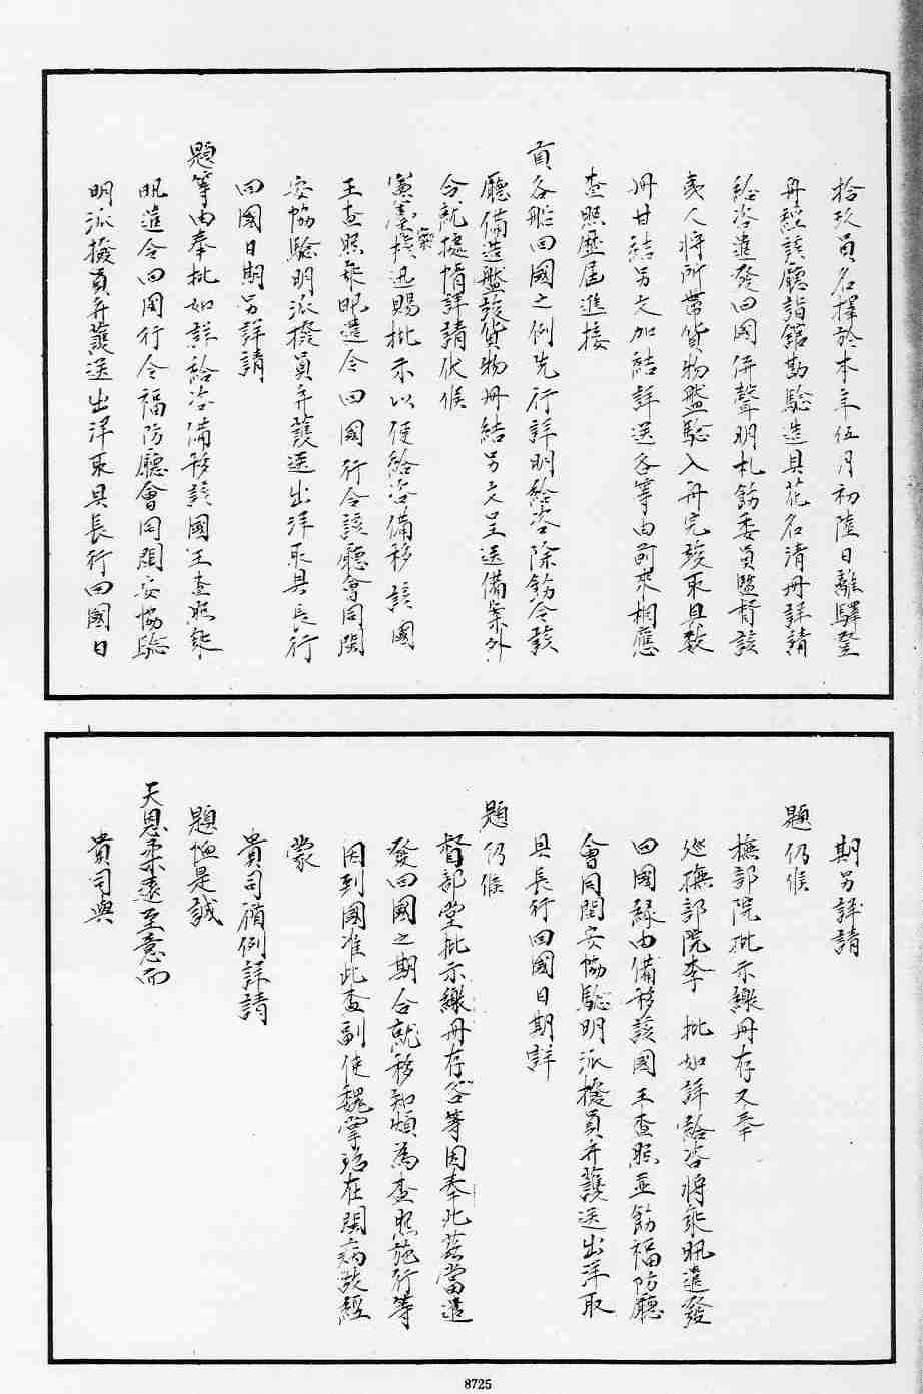 拾玖員名擇於本年伍月初陸日離驛登
舟經該廳詣館勘驗造具花名清冊詳請
給咨遣發回國併聲明札飭委員監督該
夷人將所帶貨物盤驗入舟完竣取具数
冊甘結另文加結詳送各等由前來相應
查照歷屆進接
貢各船回國之例先行詳明給咨除飭令該
廳備造盤驗貨物冊結另文呈送備案外
合就據情詳請伏候
憲臺核迅賜批示以便給咨備移該國
王查照乘帆遣令回國行令該廳會同閩
安協驗明派撥員弁護送出洋取具長行
回國日期另詳請
題等由奉批如詳給咨備移該國王查照乘
帆遣令回國行令福防廳會同閩安協驗
明派撥員弁護送出洋取具長行回國日
期另詳請
題仍候
撫部院批示繳冊存又奉
巡撫部院李 批如詳給咨將乘帆遣發
回國緣由備移該國王查照並飭福防廳
會同閩安協驗明派撥員弁護送出洋取
具長行回國日期詳
題仍候
督部堂批示繳冊存各等因奉此茲當遣
發回國之期合就移知煩為查照施行等
因到國准此查副使魏掌治在閩病故經
蒙
貴司循例詳請
題恤是誠
天恩柔遠至意而
貴司與
8725